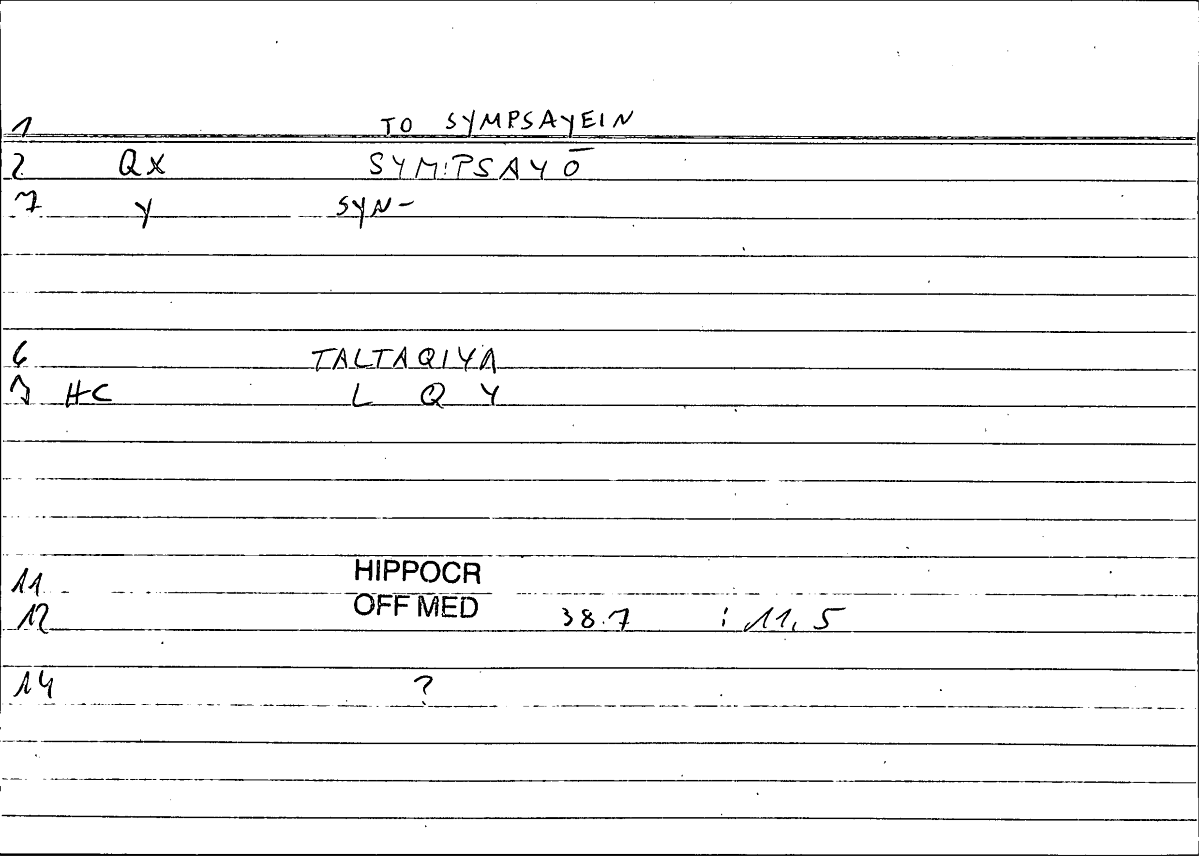 1 TO SYMPSAYEIN
2 QX SYM:PSAYŌ
7 Y SYN-
6 TALTAQIYA
7 HC L Q Y
11 HIPPOCR
12 OFF MED 38.7 : 11, 5
14 ?